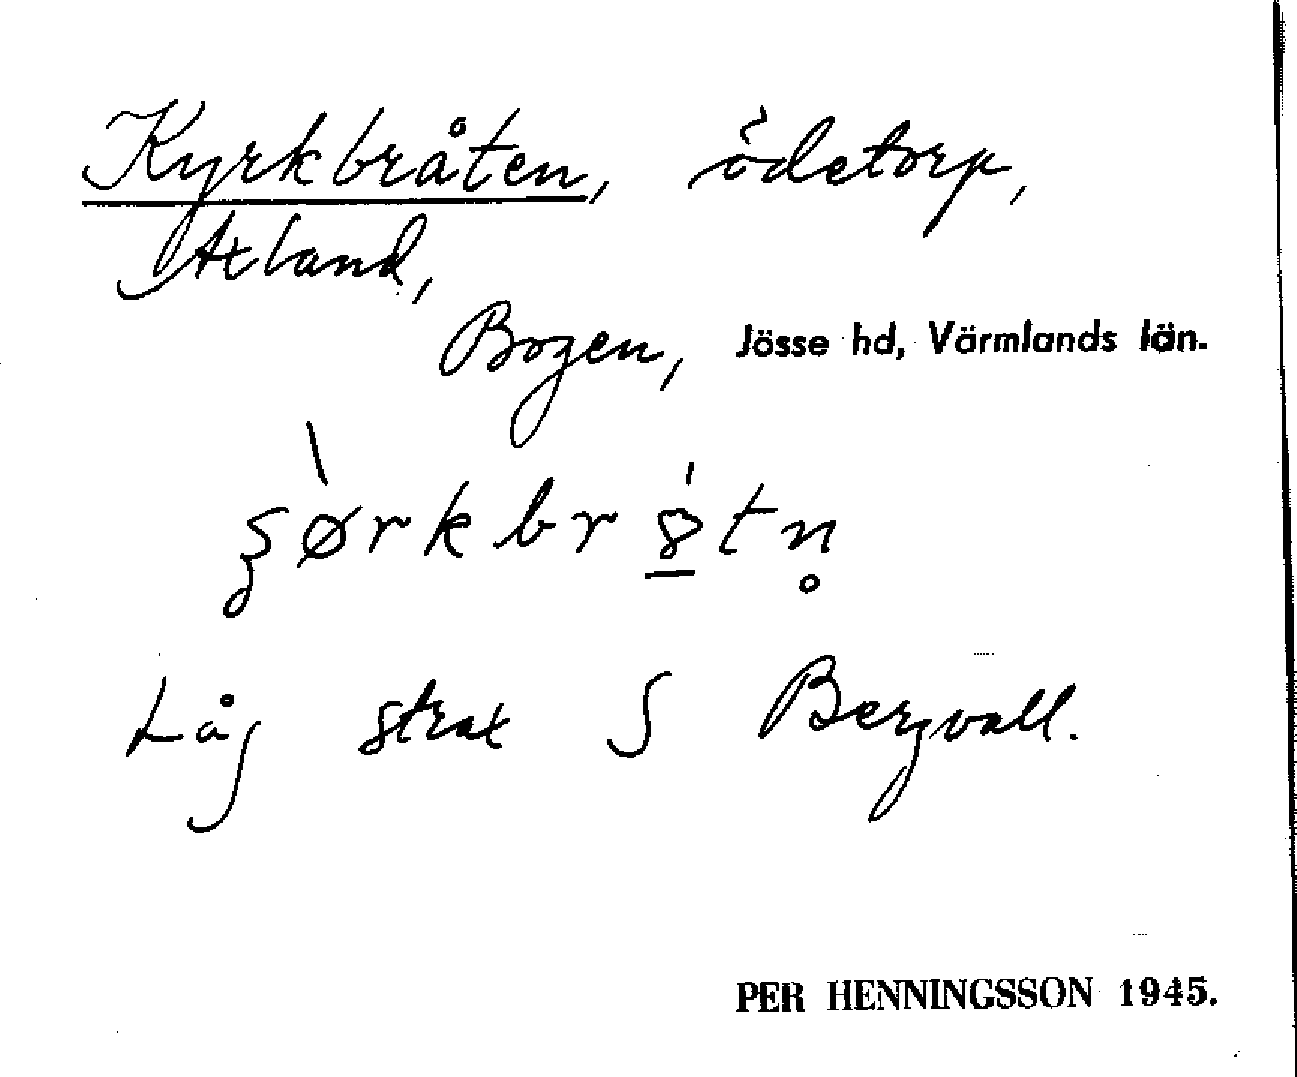 Kyrkbråten, ödetorp,
Axland,
Bogen, Jösse hd, Värmlands län.
Låg strax S Bergvall.
PER HENNINGSSON 1945.